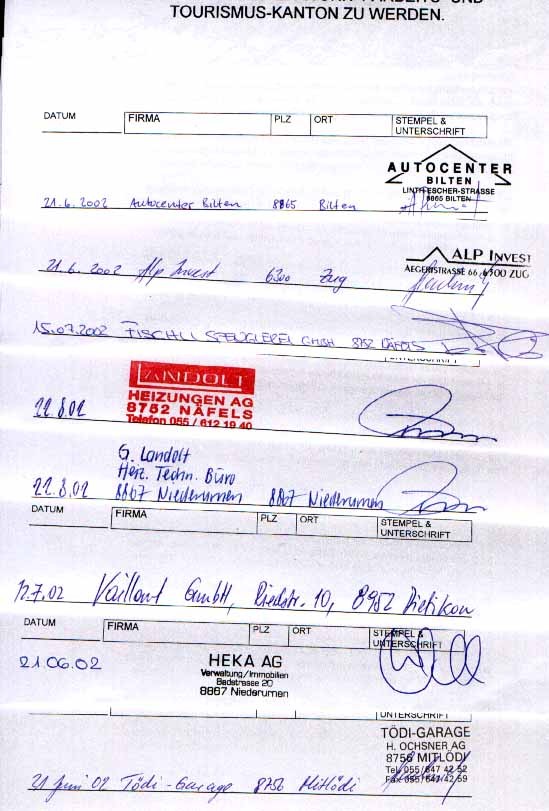 TOURISMUS-KANTON ZU WERDEN.
DATUM FIRMA PLZ ORT STEMPEL &
UNTERSCHRIFT
AUTOCENTER
BILTEN
LINTH-ESCHER-STRASSE
8865 BILTEN
21.6.2002 Autocenter Bilten 8865 Bilten
ALP INVEST
AEGERISTRASSE 66, 6300 ZUG
21.6.2002 Alp Invest 6300 Zug
15.07.2002 FISCHLI SPENGLEREI GMBH 8752 NÄFELS
UNTERSCHRIFT
LANDOLT
HEIZUNGEN AG
8752 NÄFELS
Telefon 055 / 612 19 40
22.8.02
G. Landolt
Heiz. Techn. Büro
22.8.02 8867 Niederurnen 8867 Niederurnen
DATUM FIRMA PLZ ORT STEMPEL &
UNTERSCHRIFT
12.7.02 Vaillant GmbH, Riedstr. 10, 8952 Dietikon
DATUM FIRMA PLZ ORT STEMPEL &
UNTERSCHRIFT
21.06.02 HEKA AG
Verwaltung/Immobilien
Badstrasse 20
8867 Niederurnen
UNTERSCHRIFT
TÖDI-GARAGE
H. OCHSNER AG
8756 MITLÖDI
Tel. 055/647 42 52
Fax 055/647 42 59
21 Juni 02 Tödi-Garage 8756 Mitlödi